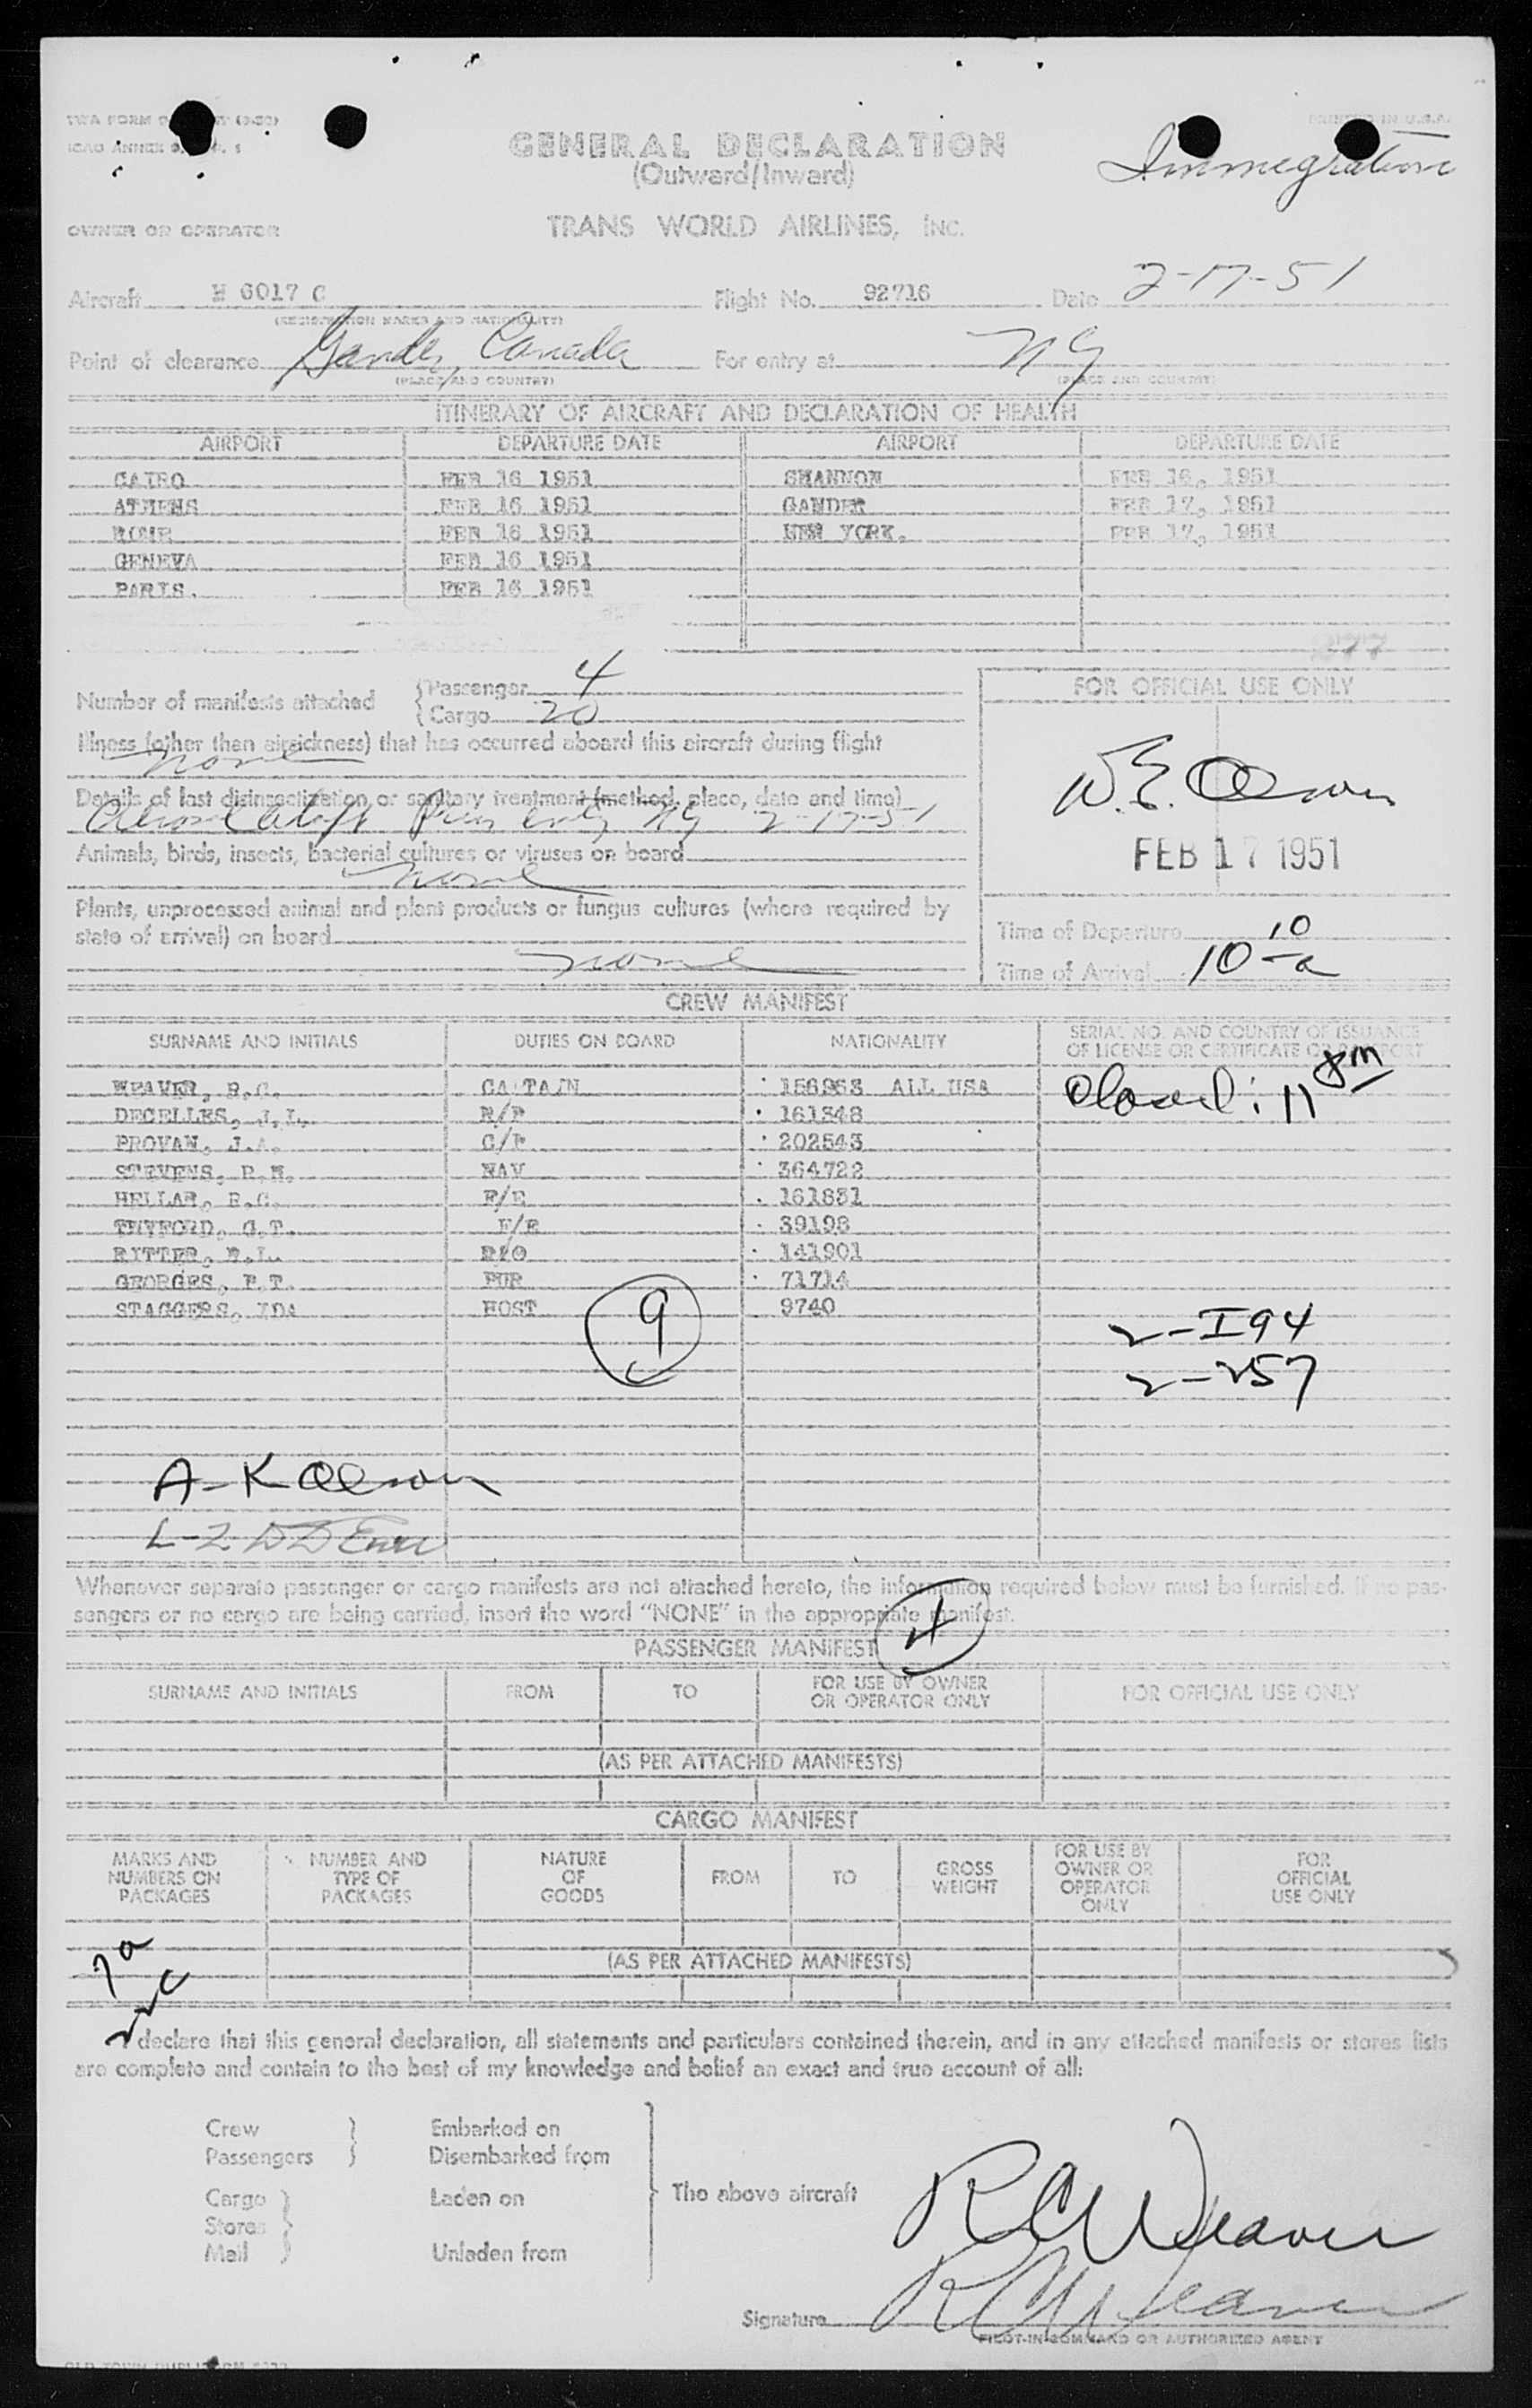 TWA FORM
PRINTED IN U.S.A.
ICAO ANNEX 9,
GENERAL DECLARATION
(Outward/Inward)
Immegration
OWNER OR OPERATOR TRANS WORLD AIRLINES, INC.
Aircraft N 6017 C Flight No. 92716 Date 2-17-51
(REGISTRATION MARKS AND NATIONALITY)
Point of clearance Gander, Canada For entry at NY
(PLACE AND COUNTRY) (PLACE AND COUNTRY)
ITINERARY OF AIRCRAFT AND DECLARATION OF HEALTH
AIRPORT DEPARTURE DATE AIRPORT DEPARTURE DATE
CAIRO FEB 16 1951 SHANNON FEB 16, 1951
ATHENS FEB 16 1951 GANDER FEB 17, 1951
ROME FEB 16 1951 NEW YORK. FEB 17, 1951
GENEVA FEB 16 1951
PARIS. FEB 16 1951
Number of manifests attached { Passenger 4
{ Cargo 20
FOR OFFICIAL USE ONLY
Illness (other than airsickness) that has occurred aboard this aircraft during flight
none
Details of last disinsectization or sanitary treatment (method, place, date and time)
Prior entry NY 2-17-51
W.E. Olson
FEB 17 1951
Animals, birds, insects, bacterial cultures or viruses on board
none
Plants, unprocessed animal and plant products or fungus cultures (where required by
state of arrival) on board
none
Time of Departure
Time of Arrival 10 10 a
CREW MANIFEST
SURNAME AND INITIALS DUTIES ON BOARD NATIONALITY SERIAL NO. AND COUNTRY OF ISSUANCE
OF LICENSE OR CERTIFICATE OR PASSPORT
WEAVER, R.C. CAPTAIN 156963 ALL USA
DECELLES, J.L. R/P 161348
PROVAN, J.A. C/P 202543
STEVENS, R.M. NAV 364722
HELLAR, R.C. F/E 161831
TETFORD, G.T. F/E 39198
RITTER, R.L. R/O 141901
GEORGES, P.T. PUR 71714
STAGGERS, IDA HOST 9740
9
2-I94
2-257
A-K Olson
Whenever separate passenger or cargo manifests are not attached hereto, the information required below must be furnished. If no pas-
sengers or no cargo are being carried, insert the word "NONE" in the appropriate manifest.
PASSENGER MANIFEST
SURNAME AND INITIALS FROM TO FOR USE BY OWNER
OR OPERATOR ONLY FOR OFFICIAL USE ONLY
(AS PER ATTACHED MANIFESTS)
CARGO MANIFEST
MARKS AND
NUMBERS ON
PACKAGES
NUMBER AND
TYPE OF
PACKAGES
NATURE
OF
GOODS
FROM TO
GROSS
WEIGHT
FOR USE BY
OWNER OR
OPERATOR
ONLY
FOR
OFFICIAL
USE ONLY
(AS PER ATTACHED MANIFESTS)
I declare that this general declaration, all statements and particulars contained therein, and in any attached manifests or stores lists
are complete and contain to the best of my knowledge and belief an exact and true account of all:
Crew } Embarked on
Passengers } Disembarked from
Cargo } Laden on
Stores }
Mail } Unladen from
The above aircraft
RC Weaver
Signature RC Weaver
PILOT-IN-COMMAND OR AUTHORIZED AGENT